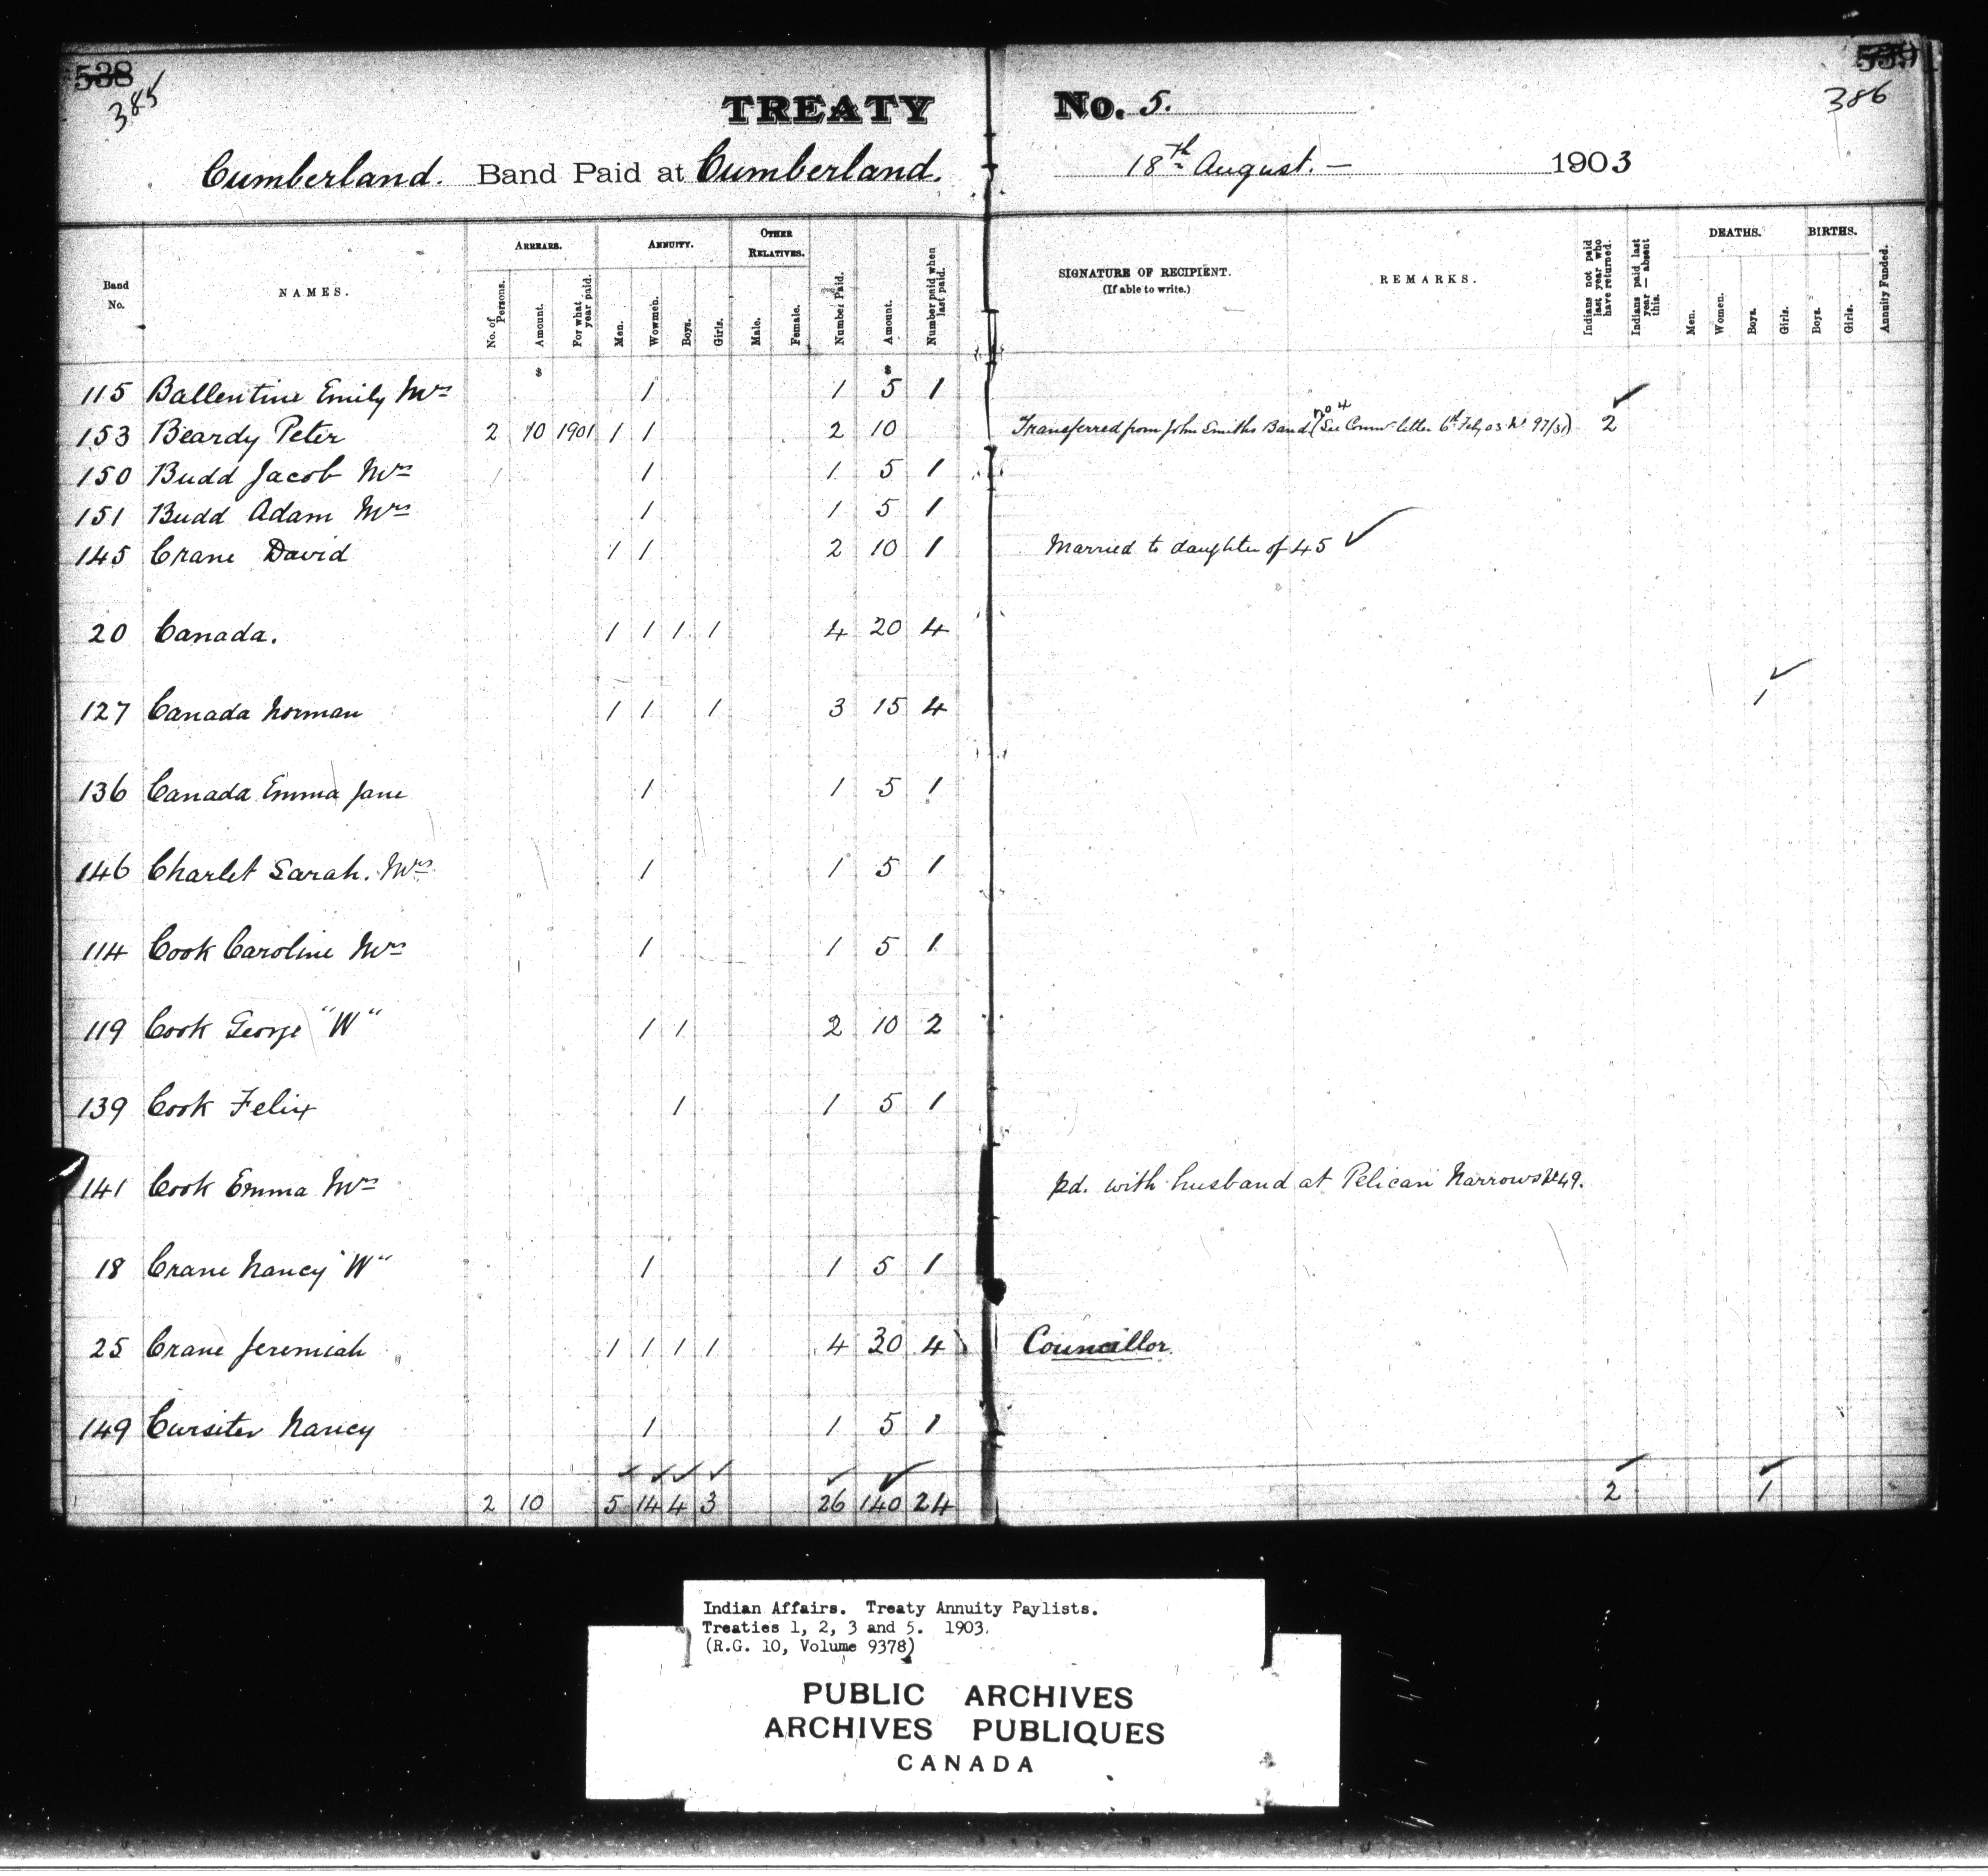 538 539
385 386
TREATY No. 5.
Cumberland. Band Paid at Cumberland. 18th August. — 1903
Band No. NAMES. ARREARS. ANNUITY. OTHER RELATIVES. Number Paid. Amount. Number paid when last paid. SIGNATURE OF RECIPIENT. (If able to write.) REMARKS. Indians not paid last year who have returned. Indians paid last year — absent this. DEATHS. BIRTHS. Annuity Funded.
No. of Persons. Amount. For what year paid. Men. Wowmen. Boys. Girls. Male. Female. Men. Women. Boys. Girls. Boys. Girls.
$ $
115 Ballentine Emily Mrs 1 1 5 1 ✓
153 Beardy Peter 2 10 1901 1 1 2 10 Transferred from John Smiths Band no 4 (See Comr letter 6th Feb 03 No 97/31) 2
150 Budd Jacob Mrs 1 1 5 1
151 Budd Adam Mrs 1 1 5 1
145 Crane David 1 1 2 10 1 Married to daughter of 45 ✓
20 Canada. 1 1 1 1 4 20 4
127 Canada Norman 1 1 1 3 15 4 1 ✓
136 Canada Emma Jane 1 1 5 1
146 Charlet Sarah. Mrs 1 1 5 1
114 Cook Caroline Mrs 1 1 5 1
119 Cook George "W" 1 1 2 10 2
139 Cook Felix 1 1 5 1
141 Cook Emma Mrs pd. with husband at Pelican Narrows No 49.
18 Crane Nancy "W" 1 1 5 1
25 Crane Jeremiah 1 1 1 1 4 30 4 Councillor
149 Cursiter Nancy 1 1 5 1
✓ ✓ ✓ ✓ ✓ ✓ ✓ ✓
2 10 5 14 4 3 26 140 24 2 1
Indian Affairs. Treaty Annuity Paylists.
Treaties 1, 2, 3 and 5. 1903.
(R.G. 10, Volume 9378)
PUBLIC ARCHIVES
ARCHIVES PUBLIQUES
CANADA